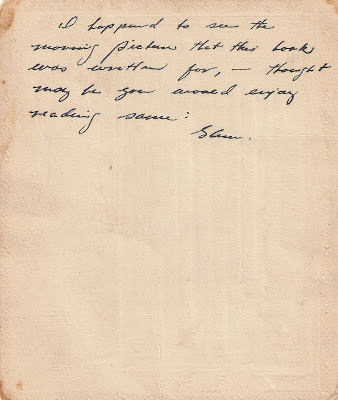 I happend to see the
moving picture that this book
was written for, – thought
may be you would enjoy
reading same:
Glenn.